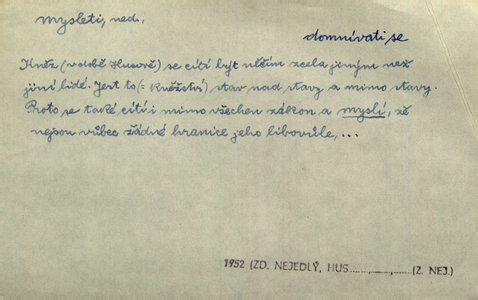 mysleti, ned.,
domnívati se
Kněz (v době Husově) se cítí být něčím zcela jiným než
jiní lidé. Jest to (: kněžství) stav nad stavy a mimo stavy.
Proto se také cítí i mimo všechen zákon a myslí, že
nejsou vůbec žádné hranice jeho libovůle, ...
1952 (ZD. NEJEDLÝ, HUS......,......,......(Z. NEJ.)